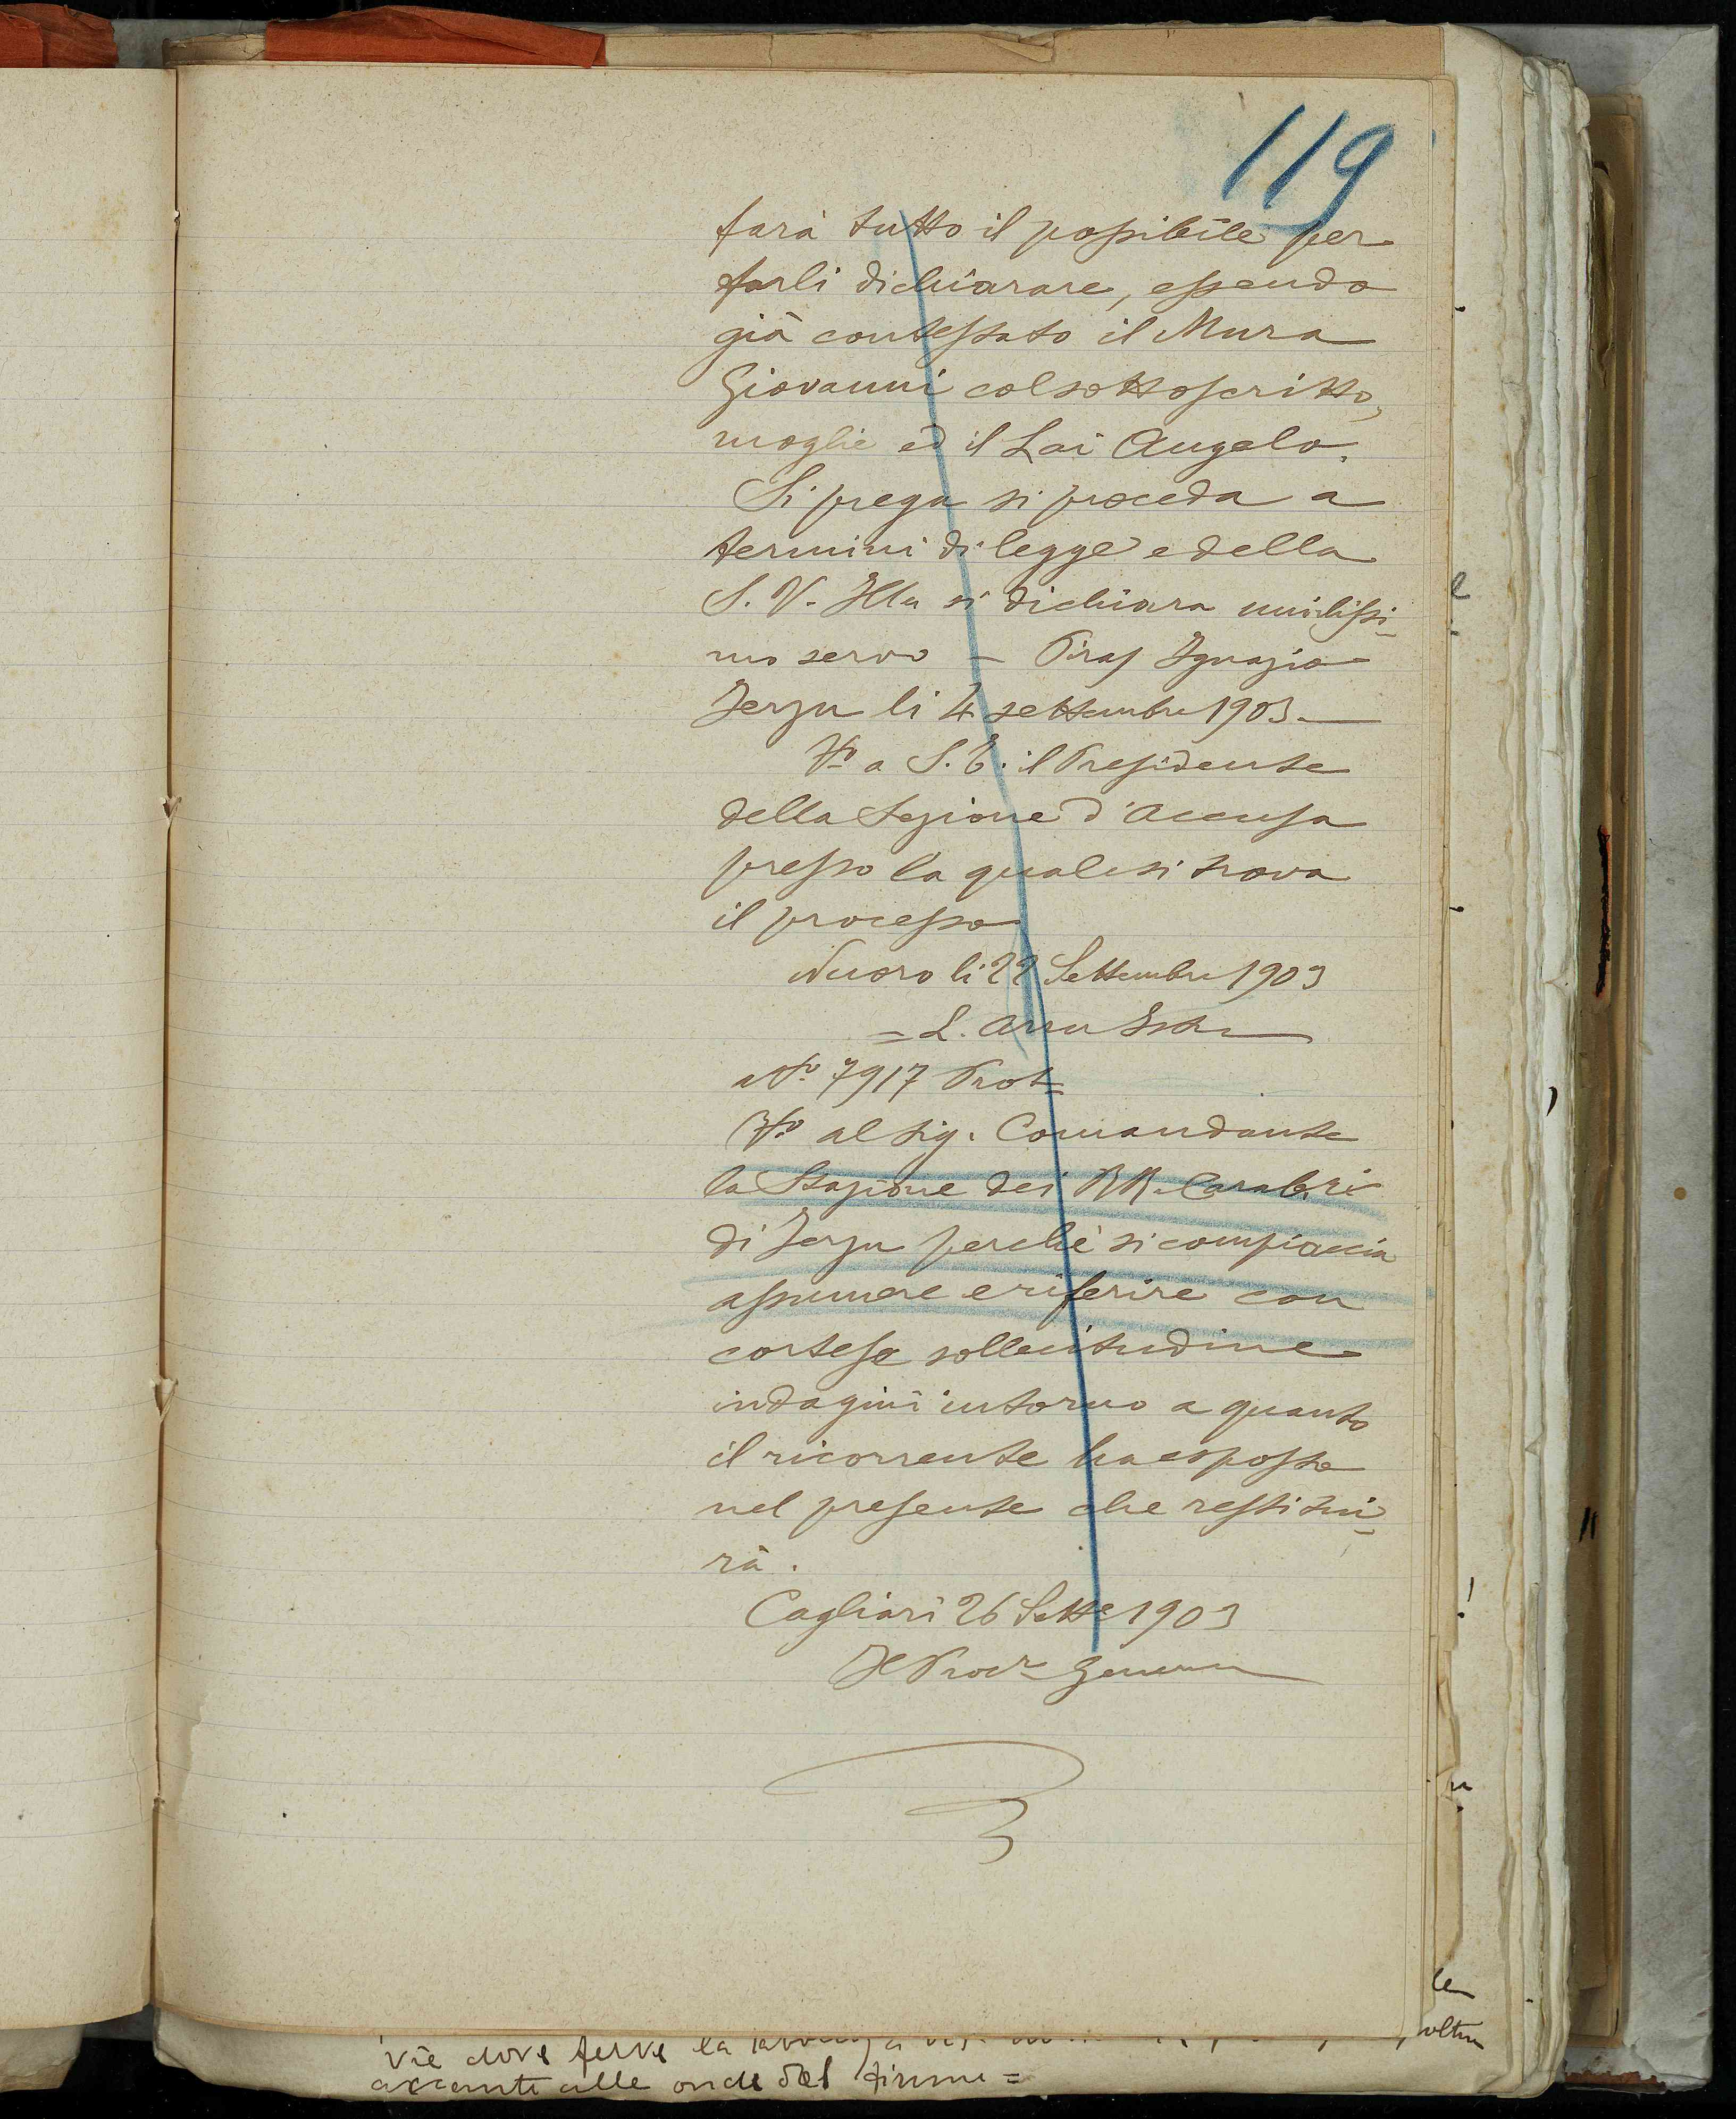 119
farà tutto il possibile per
farli dichiarare, essendo
già contestato il Mura
Giovanni col sottoscritto,
moglie ed il Lai Angelo.
Si prega si proceda a
termini di legge e della
S. V. Illa si dichiara umilissi-
mo servo - Piras Ignazio
Jerzu li 4 settembre 1903.
Vo a S. E. il Presidente
della Sezione d'Accusa
presso la quale si trova
il processo
Nuoro li 22 Settembre 1903
= L. Arru
No. 7917 Prot=
Vo al sig. Comandante
la Stazione dei RR. Carabri
di Jerzu perchè si compiaccia
assumere e riferire con
cortese sollecitudine
indagini intorno a quanto
il ricorrente ha esposto
nel presente che restitui-
rà.
Cagliari 26 Sette 1903
Il Procr
vie dove ferve la
accanto alle onde del fiume =
oltre